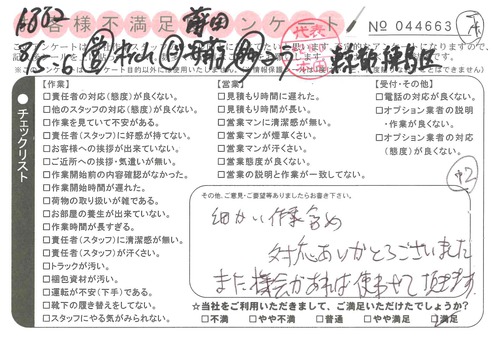 お客様不満足アンケート
No 044663
【作業】
□責任者の対応(態度)が良くない。
□他のスタッフの対応(態度)が良くない。
□作業を見ていて不安がある。
□責任者(スタッフ)に好感が持てない。
□お客様への挨拶が出来ていない。
□ご近所への挨拶・気遣いが無い。
□作業開始前の内容確認がなかった。
□作業開始時間が遅れた。
□荷物の取り扱いが雑である。
□お部屋の養生が出来ていない。
□作業時間が長すぎる。
□責任者(スタッフ)に清潔感が無い。
□責任者(スタッフ)が汗くさい。
□トラックが汚い。
□梱包資材が汚い。
□運転が不安(下手)である。
□靴下の履き替えをしてない。
□スタッフにやる気がみられない。
【営業】
□見積もり時間に遅れた。
□見積もり時間が長い。
□営業マンに清潔感が無い。
□営業マンが煙草くさい。
□営業マンが汗くさい。
□営業態度が良くない。
□営業の説明と作業が一致してない。
【受付・その他】
□電話の対応が良くない。
□オプション業者の説明
・作業が良くない。
□オプション業者の対応
(態度)が良くない。
チェックリスト
その他、ご意見・ご要望等ありましたらお書き下さい。
細かい作業含め
対応ありがとうございました
また機会があれば使わせて頂きます
☆当社をご利用いただきまして、ご満足いただけたでしょうか?
□不満 □やや不満 □普通 □やや満足 □満足